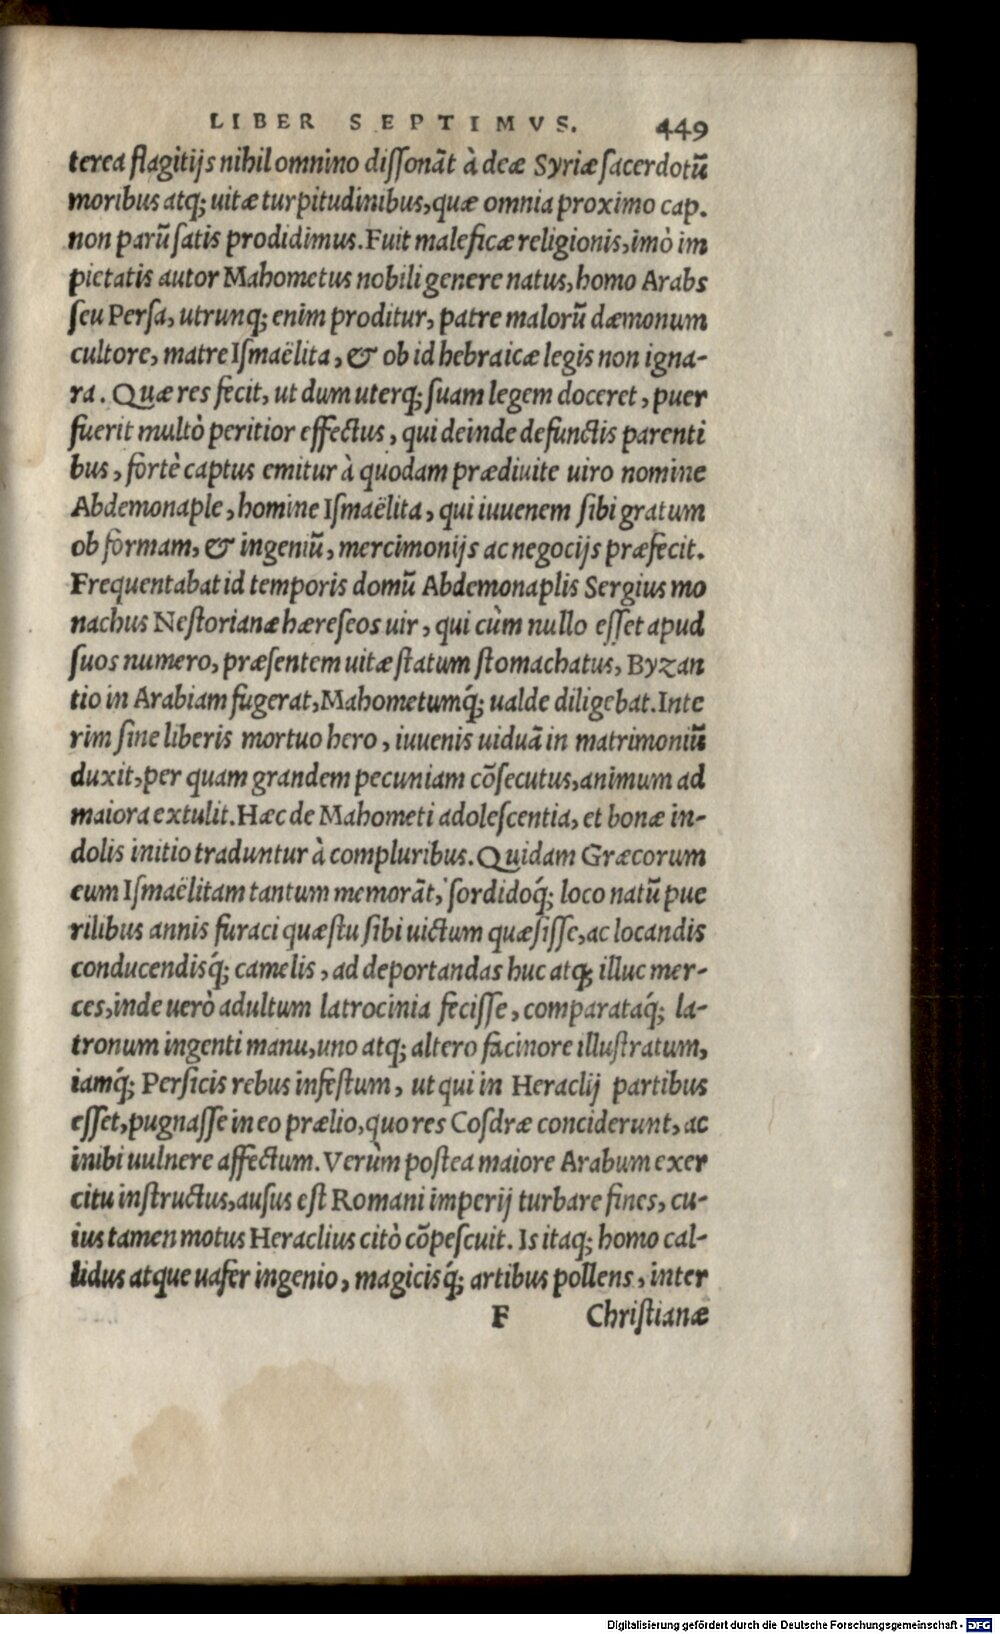 LIBER SEPTIMVS. 449
terea flagitijs nihil omnino dissonāt à deæ Syriæ sacerdotū
moribus atq; uitæ turpitudinibus, quæ omnia proximo cap.
non parū satis prodidimus. Fuit maleficæ religionis, imò im
pietatis autor Mahometus nobili genere natus, homo Arabs
seu Persa, utrunq; enim proditur, patre malorū dæmonum
cultore, matre Ismaëlita, & ob id hebraicæ legis non igna-
ra. Quæ res fecit, ut dum uterq; suam legem doceret, puer
fuerit multò peritior effectus, qui deinde defunctis parenti
bus, fortè captus emitur à quodam prædiuite uiro nomine
Abdemonaple, homine Ismaëlita, qui iuuenem sibi gratum
ob formam, & ingeniū, mercimonijs ac negocijs præfecit.
Frequentabat id temporis domū Abdemonaplis Sergius mo
nachus Nestorianæ hæreseos uir, qui cùm nullo esset apud
suos numero, præsentem uitæ statum stomachatus, Byzan
tio in Arabiam fugerat, Mahometumq́; ualde diligebat. Inte
rim sine liberis mortuo hero, iuuenis uiduā in matrimoniū
duxit, per quam grandem pecuniam cōsecutus, animum ad
maiora extulit. Hæc de Mahometi adolescentia, et bonæ in-
dolis initio traduntur à compluribus. Quidam Græcorum
eum Ismaëlitam tantum memorāt, sordidoq́; loco natū pue
rilibus annis furaci quæstu sibi uictum quæsisse, ac locandis
conducendisq́; camelis, ad deportandas huc atq; illuc mer-
ces, inde uerò adultum latrocinia fecisse, comparataq́; la-
tronum ingenti manu, uno atq; altero facinore illustratum,
iamq́; Persicis rebus infestum, ut qui in Heraclij partibus
esset, pugnasse in eo prælio, quo res Cosdræ conciderunt, ac
inibi uulnere affectum. Verùm postea maiore Arabum exer
citu instructus, ausus est Romani imperij turbare fines, cu-
ius tamen motus Heraclius citò cōpescuit. Is itaq; homo cal-
lidus atque uafer ingenio, magicisq́; artibus pollens, inter
F Christianæ
Digitalisierung gefördert durch die Deutsche Forschungsgemeinschaft - DFG